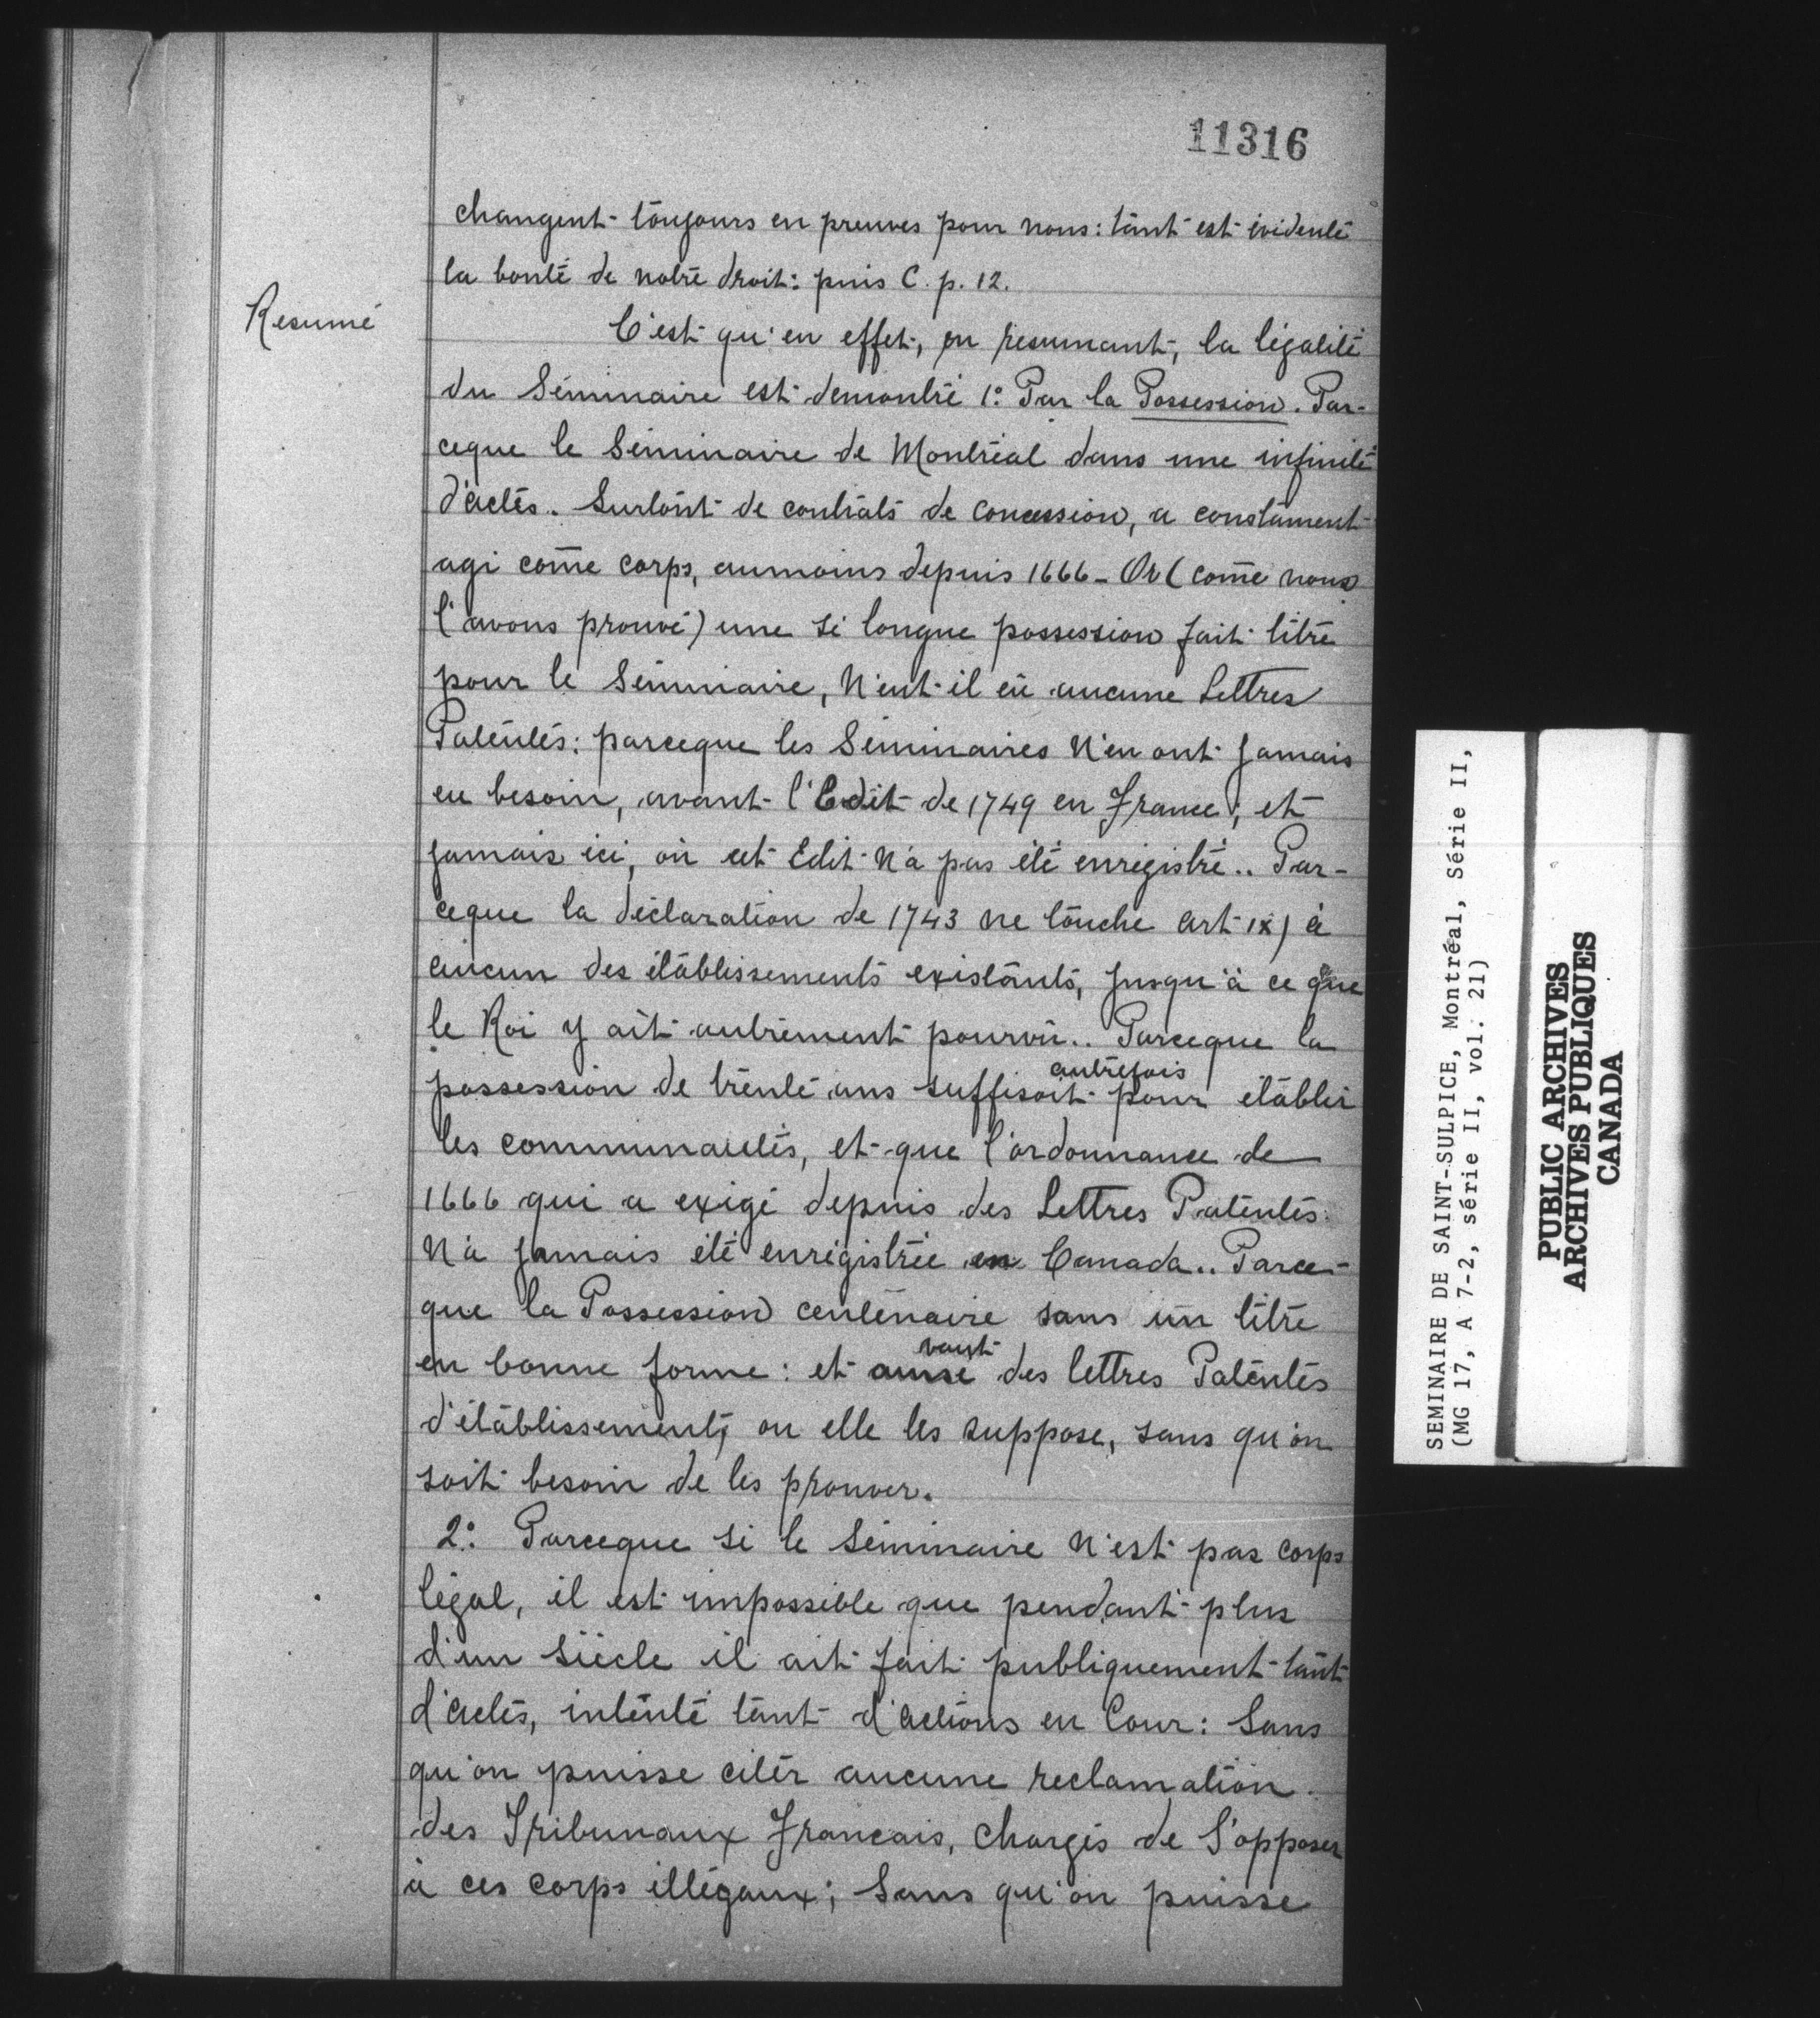 11316
changent toujours en preuves pour nous: tant est évidente
la bonté de notre droit: puis C. p. 12.
Resumé
C'est qu'en effet, en resumant, la légalité
du Séminaire est demontré 1º Par la Possession. Par-
ceque le Séminaire de Montréal dans une infinité
d'actes. Surtout de contrats de concession, a constament
agi come corps, aumoins depuis 1666 - Or (come nous
l'avons prouvé) une si longue possession fait titre
pour le Séminaire, N'eut-il eû aucune Lettres
Patentes: parceque les Séminaires N'en ont jamais
eu besoin, avant l'Edit de 1749 en France; et
jamais ici, où cet Edit N'a pas été enregistré.. Par-
ceque la déclaration de 1743 ne touche art IX) à
aucun des établissements existants, jusqu'à ce que
le Roi y ait autrement pourvû.. Parceque la
possession de trente ans suffisoit autrefois pour établir
les communautés, et que l'ordonnance de
1666 qui a exigé depuis des Lettres Patentes
N'a jamais été enrégistrée en Canada.. Parce-
que la Possession centenaire sans un titre
en bonne forme: et vaut des lettres Patentes
d'établissement, ou elle les suppose, sans qu'on
soit besoin de les prouver.
2º Parceque si le Séminaire N'est pas corps
légal, il est impossible que pendant plus
d'un siècle il ait fait publiquement tant
d'actes, intenté tant d'actions en Cour: Sans
qu'on puisse citer aucune reclamation
des Tribunaux Francais, chargés de S'opposer
à ces corps illégaux; Sans qu'on puisse
SEMINAIRE DE SAINT-SULPICE, Montréal, Série II,
(MG 17, A 7-2, série II, vol. 21)
PUBLIC ARCHIVES
ARCHIVES PUBLIQUES
CANADA